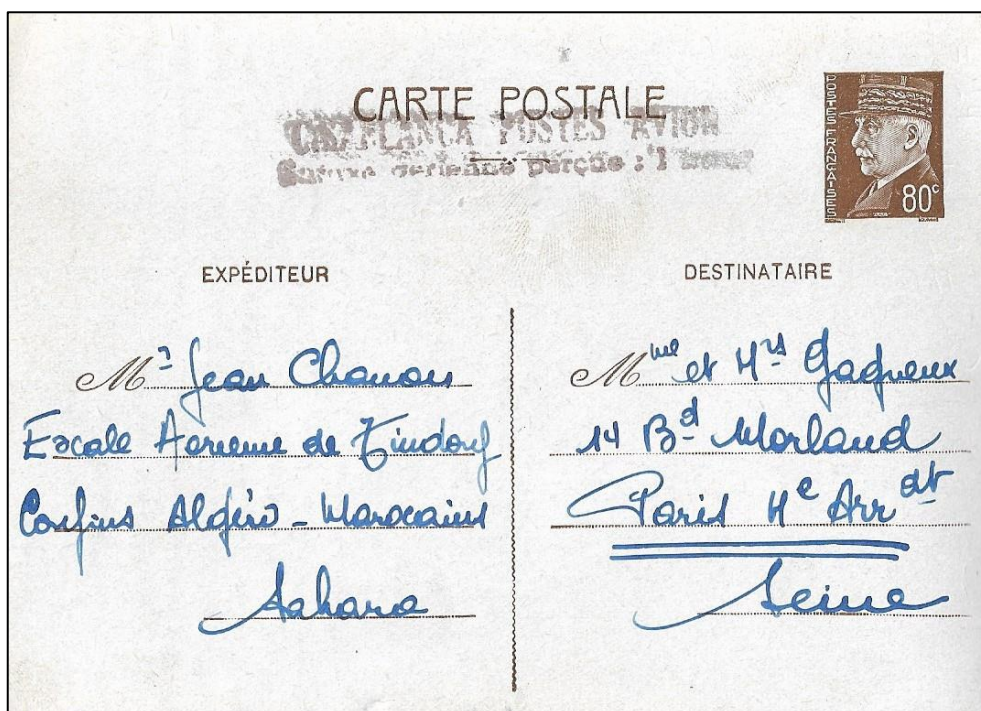 CARTE POSTALE
CASABLANCA POSTES AVION
Surtaxe aérienne perçue : 1 franc
POSTES FRANÇAISES
80c
EXPÉDITEUR
Mr Jean Chanon
Escale Aerienne de Tindouf
Confins Algéro-Marocains
Sahara
DESTINATAIRE
Mme et Mrs Gagneux
14 Bd Morland
Paris 4e Arrdt
Seine